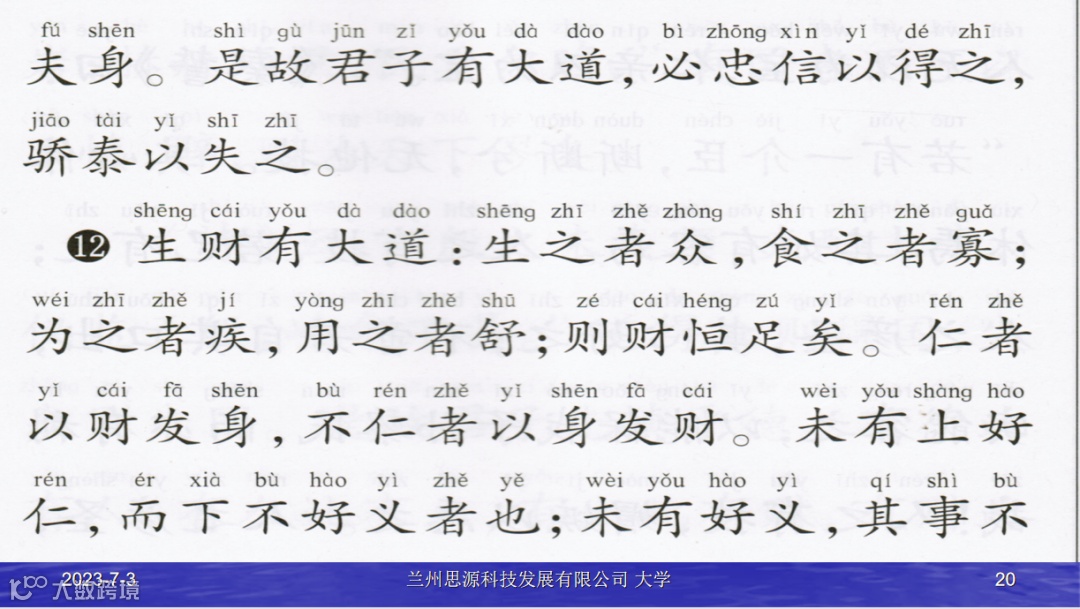 fú shēn shì gù jūn zǐ yǒu dà dào bì zhōng xìn yǐ dé zhī
夫身。是故君子有大道,必忠信以得之,
jiāo tài yǐ shī zhī
骄泰以失之。
shēng cái yǒu dà dào shēng zhī zhě zhòng shí zhī zhě guǎ
⓬生财有大道:生之者众,食之者寡;
wéi zhī zhě jí yòng zhī zhě shū zé cái héng zú yǐ rén zhě
为之者疾,用之者舒;则财恒足矣。仁者
yǐ cái fā shēn bù rén zhě yǐ shēn fā cái wèi yǒu shàng hào
以财发身,不仁者以身发财。未有上好
rén ér xià bù hào yì zhě yě wèi yǒu hào yì qí shì bù
仁,而下不好义者也;未有好义,其事不
2023-7-3 兰州思源科技发展有限公司 大学 20
大数跨境